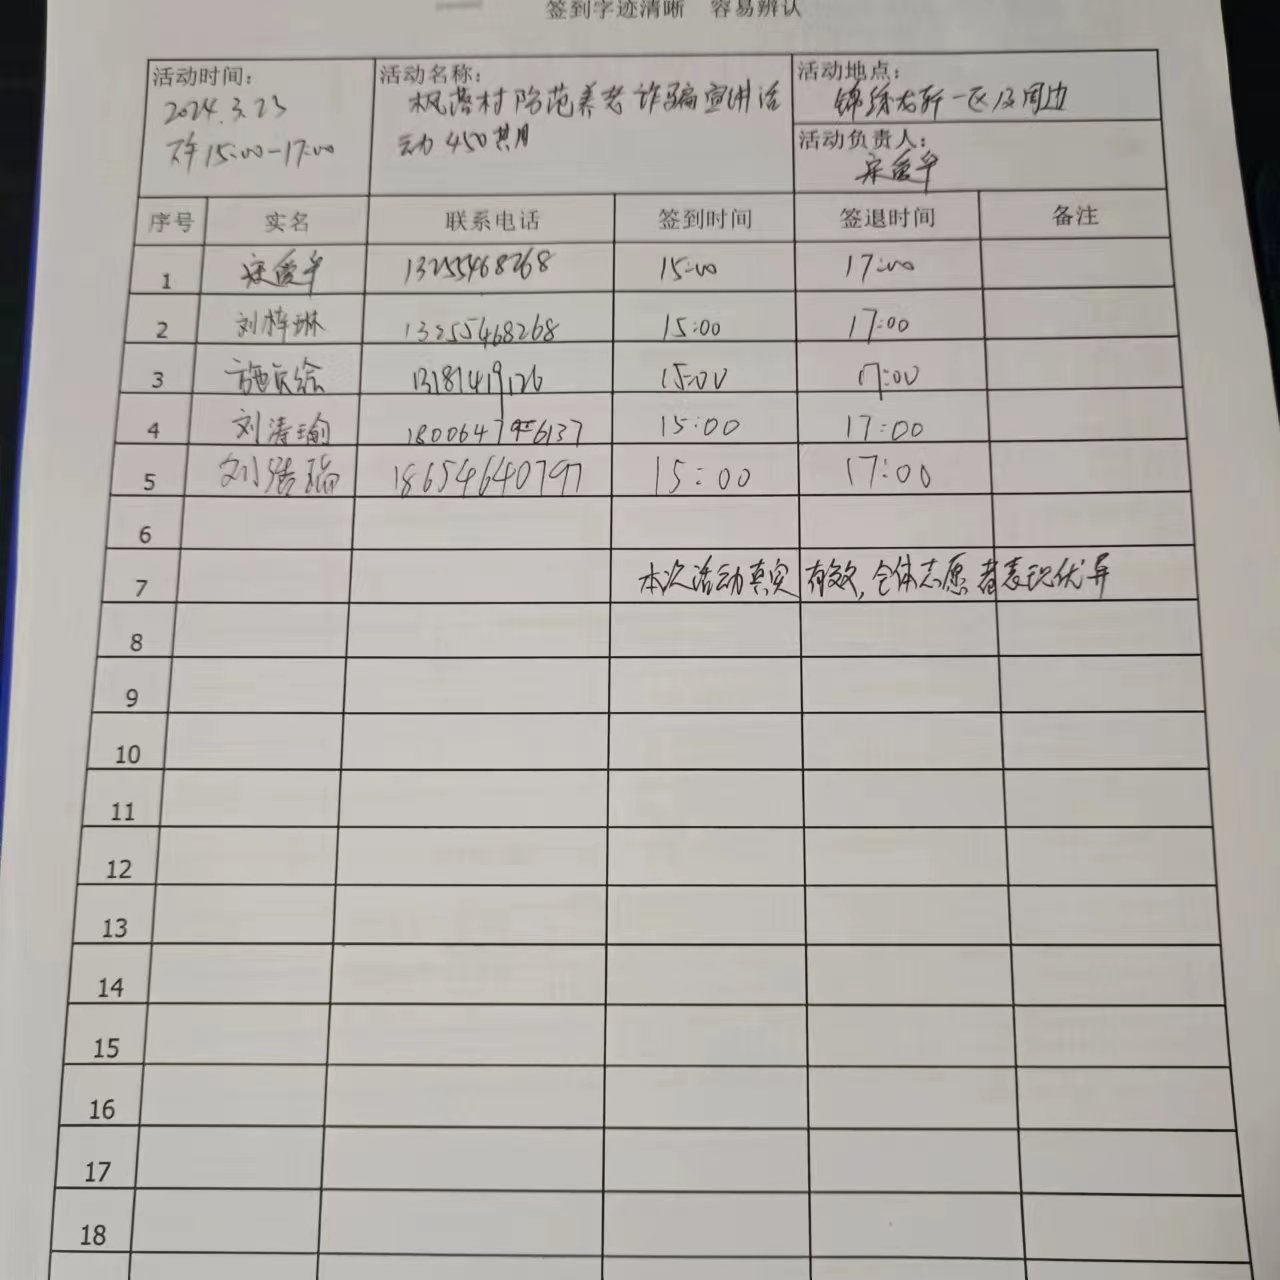 签到字迹清晰 容易辨认
活动时间:
2024.3.23
下午15:00-17:00
活动名称:
枫落村防范养老诈骗宣讲活
动 450其用
活动地点:
锦绣龙轩一区及周边
活动负责人:
宋爱华
序号 实名 联系电话 签到时间 签退时间 备注
1 宋爱华 13255468268 15:00 17:00
2 刘梓琳 13255468268 15:00 17:00
3 13181419126 15:00 17:00
4 刘涛瑜 15:00 17:00
5 刘浩瑞 18654640797 15:00 17:00
6
7 本次活动真实有效,全体志愿者表现优异
8
9
10
11
12
13
14
15
16
17
18